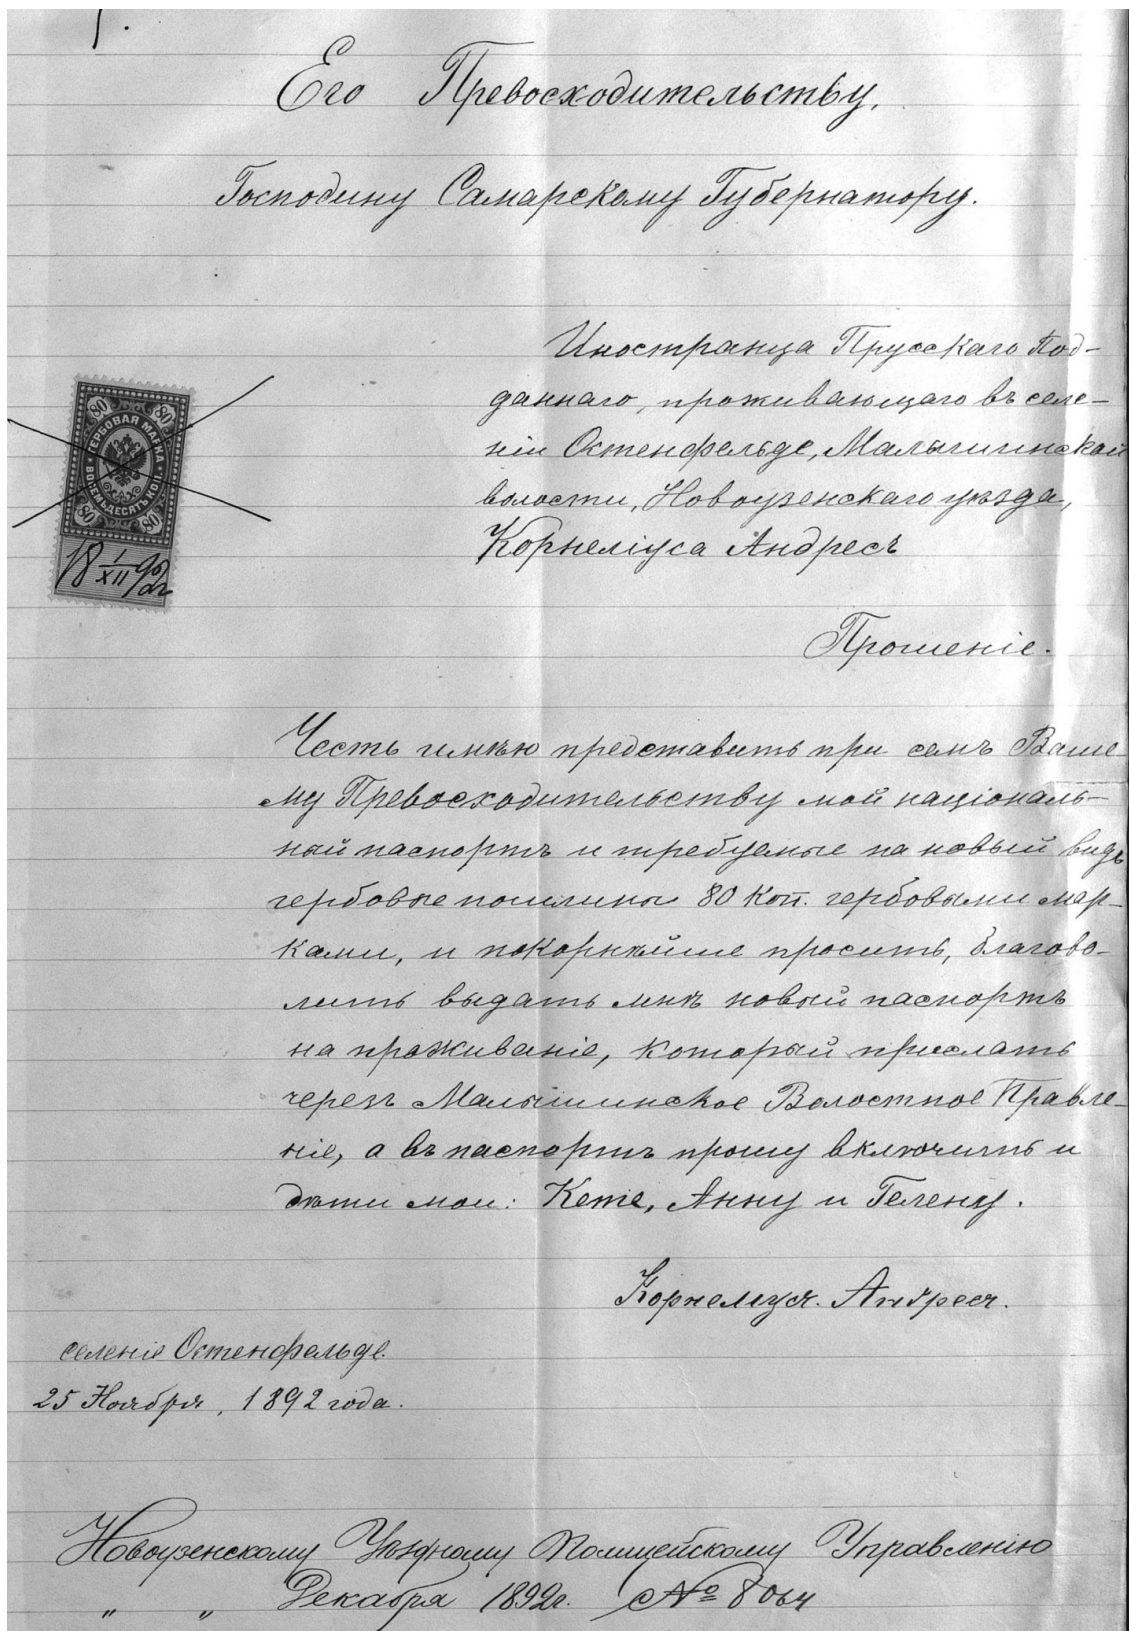 Его Превосходительству,
Господину Самарскому Губернатору.
Иностранца Прусскаго Под-
даннаго, проживающаго въ селе-
ніи Остенфельде, Малышинской
волости, Новоузенскаго уѣзда,
Корнеліуса Андресъ
80 80
ГЕРБОВАЯ МАРКА
ВОСЕМЬДЕСЯТЪ КОП.
80 80
18 I/XII 92
Прошеніе.
Честь имѣю представить при семъ Ваше-
му Превосходительству мой національ-
ный паспортъ и требуемые на новый видъ
гербовые пошлины 80 коп. гербовыми мар-
ками, и покорнѣйше просить, благово-
лить выдать мнѣ новый паспортъ
на проживаніе, который прислать
черезъ Малышинское Волостное Правле-
ніе, а въ паспортъ прошу включить и
дѣти мои: Кете, Анну и Гелену.
Корнелиусъ. Андресъ.
селеніе Остенфельде.
25 Ноября, 1892 года.
Новоузенскому Уѣздному Полицейскому Управленію
" " Декабря 1892г. № 8064